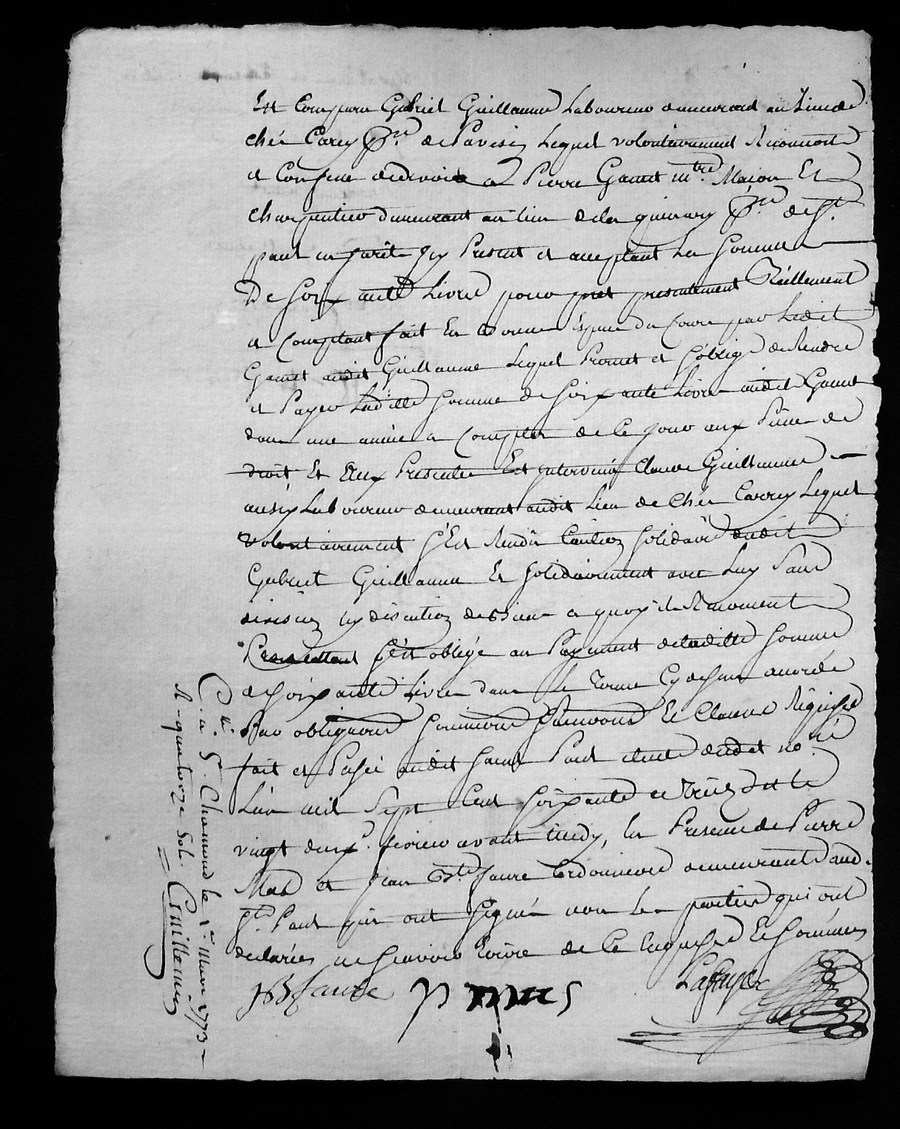 Est Comparu Gabriel Guillaume Laboureur demeurant au Lieu de
chéz Carry psse de Pavesin Lequel volontairement Reconnoit
et Confesse de devoir a Pierre Ganet mtre Macon Et
charpentier demeurant au lieu de la psse de St
paul en Jarét Icy Present et acceptant La Somme
De Soixante Livres pour pret presentement Réellement
et Comptant fait En bonne Espece du Cours par Ledit
Ganet audit Guillaume Lequel Promet et S'oblige de Rendre
et Payer Laditte Somme de Soixante Livres audit Ganet
dans une année a Compter de Ce jour aux Peines de
droit Et aux Presentes Est intervenu Claude Guillaume
aussy Laboureur demeurant audit Lieu de Chéz Carry Lequel
volontairement S'Est Rendu Caution Solidaire dudit
Gabriel Guillaume Et Solidairement avec Luy Sans
division ny discution de Biens a quoy il Renoncent
S'est obligé au Payement de laditte Somme
de Soixante Livres dans le Terme Cy dessus accordé
Par obligations Soumissions Et Clauses Requises
fait et Passé audit Saint Paul étude dudit nore
L'an mil Sept Cent Soixante et Treize et le
vingt deuxe fevrier avant midy, En Presence de Pierre
Mas et Jean Bte Faure Cordonniers demeurants aud.
St. Paul qui ont Signés non Les parties qui ont
declarées ne Scavoir Ecrire de Ce Enquises Et Sommées
JB faure p mas
C.lé a St. Chamond le 2e Mars 1773
R. quatorze Sols